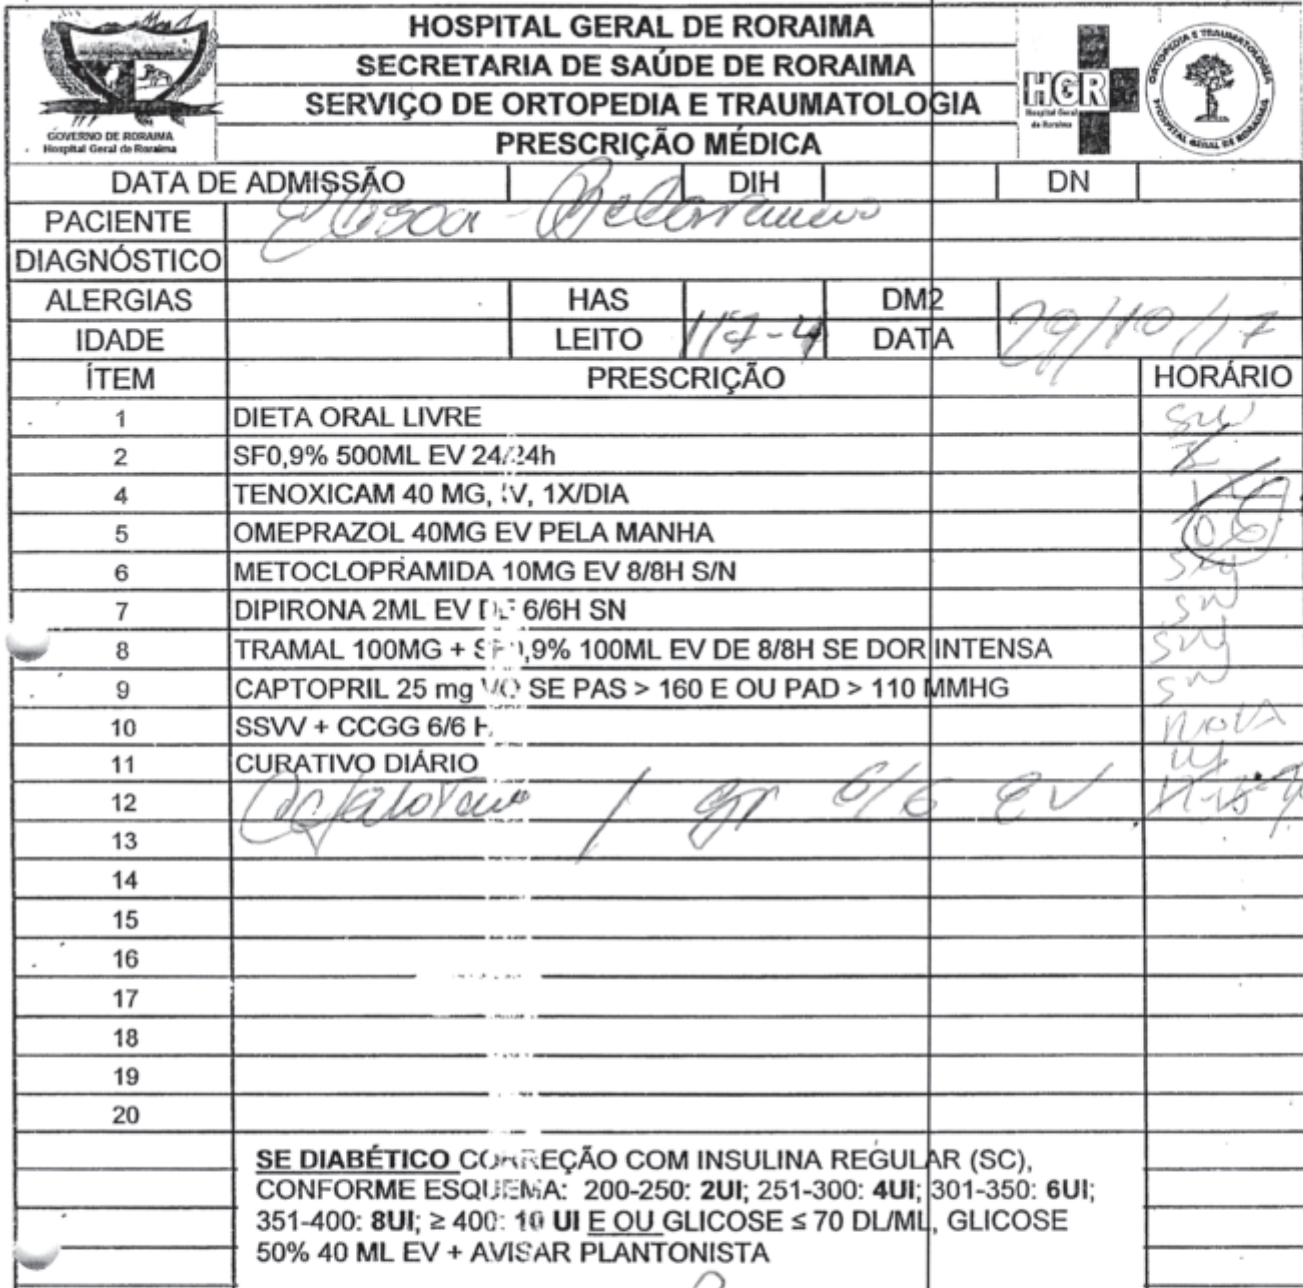 HOSPITAL GERAL DE RORAIMA
SECRETARIA DE SAÚDE DE RORAIMA
SERVIÇO DE ORTOPEDIA E TRAUMATOLOGIA
PRESCRIÇÃO MÉDICA
GOVERNO DE RORAIMA
Hospital Geral de Roraima
HGR
Hospital Geral
de Roraima
ORTOPEDIA E TRAUMATOLOGIA
HOSPITAL GERAL DE RORAIMA
DATA DE ADMISSÃO DIH DN
PACIENTE
DIAGNÓSTICO
ALERGIAS HAS DM2
IDADE LEITO 117-4 DATA 29/10/17
ÍTEM PRESCRIÇÃO HORÁRIO
1 DIETA ORAL LIVRE
2 SF0,9% 500ML EV 24/24h
4 TENOXICAM 40 MG, IV, 1X/DIA
5 OMEPRAZOL 40MG EV PELA MANHA 06
6 METOCLOPRAMIDA 10MG EV 8/8H S/N
7 DIPIRONA 2ML EV DE 6/6H SN SN
8 TRAMAL 100MG + SF0,9% 100ML EV DE 8/8H SE DOR INTENSA
9 CAPTOPRIL 25 mg VO SE PAS > 160 E OU PAD > 110 MMHG SN
10 SSVV + CCGG 6/6 H
11 CURATIVO DIÁRIO
12 1 gr 6/6 EV
13
14
15
16
17
18
19
20
SE DIABÉTICO CORREÇÃO COM INSULINA REGULAR (SC),
CONFORME ESQUEMA: 200-250: 2UI; 251-300: 4UI; 301-350: 6UI;
351-400: 8UI; ≥ 400: 10 UI E OU GLICOSE ≤ 70 DL/ML, GLICOSE
50% 40 ML EV + AVISAR PLANTONISTA